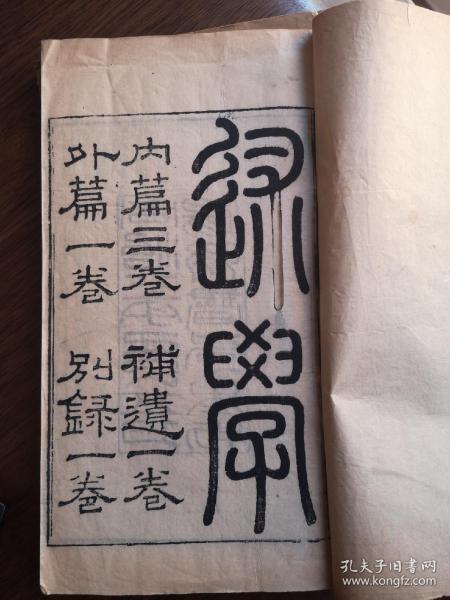 述學
內篇三卷 補遺一卷
外篇一卷 別録一卷
孔夫子旧书网
www.kongfz.com